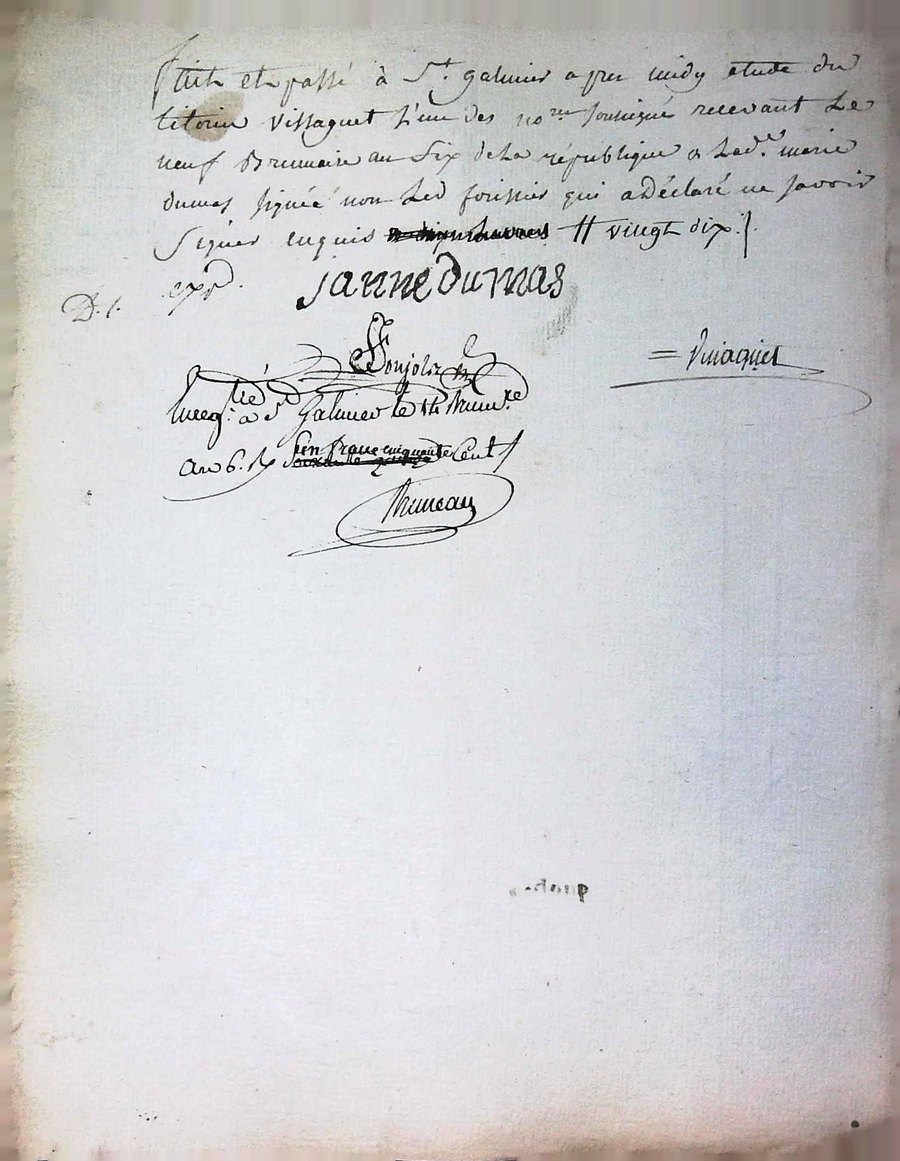 fait et passé à St. galmier apres midy etude du
citoien Vissaguet l'un des nores soussignés recevant Le
neuf Brumaire an Six de La république & Lade. marie
dumas signée non Led forissier qui a déclaré ne savoir
Signer enquis # vingt dix.
D. 1. expd.
janne dumas
Bonjolir
Enregtré à St Galmier le 14 Brumre
an 6. Rx un franc cinquante Cent
Bruneau